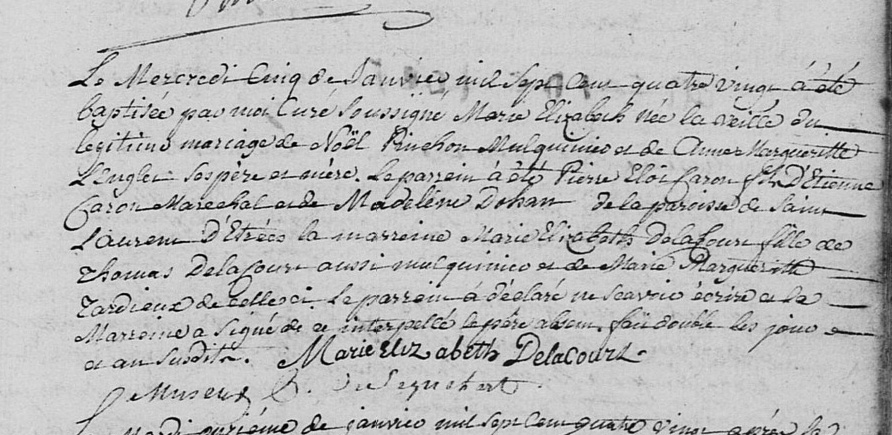 Le Mercredi Cinq de Janvier mil Sept Cent quatre vingt à été
baptisée par moi Curé Soussigné, Marie Elizabeth née la veille du
legitime mariage de Noël Pinchon Mulquinier et de Anne Margueritte
L'Englet Ses père et mère. Le parrein à été Pierre Eloi Caron fils D'Etienne
Caron Marechal et de Madeléne Dohan de la paroisse de Saint
Laurent D'Etrées la marreine Marie Elizabeth Delacourt fille de
Thomas Delacourt aussi mulquinier et de Marie Margueritte
Tardieux de celle ci. Le parrein à déclaré ne scavoir écrire et la
Marreine a Signé de ce interpellé le père absent. fait double les jour
et an Susdits. Marie Eliz abeth Delacourt
Museux C. de Lequehart
Mardi onzième de janvier mil sept Cent quatre vingt après la